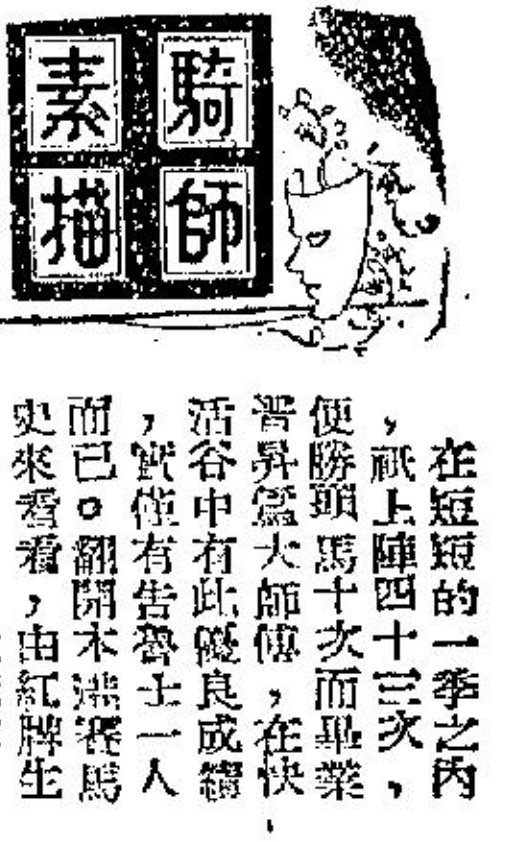 騎師
素描
在短短的一季之內
，祇上陣四十三次，
便勝頭馬十次而畢業
晉昇為大師傅，在快
活谷中有此優良成績
，實僅有告魯士一人
而已。翻開本港賽馬
史來看看，由紅牌生